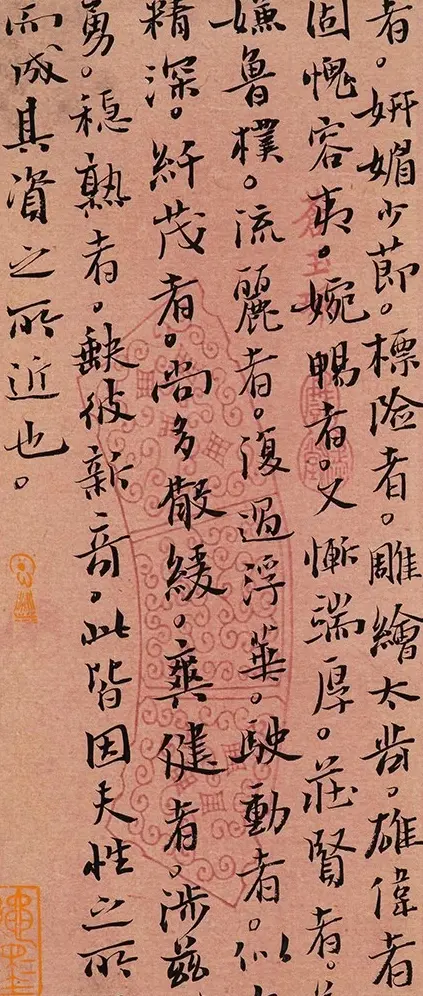 者。妍媚少節。標險者。雕繪太苛。雄偉者
固愧容夷。婉暢者。又慚端厚。莊賢者。
嫌魯樸。流麗者。復過浮華。駛動者。似
精深。纖茂者。尚多散緩。爽健者。涉茲
勇。穩熟者。缺彼新奇。此皆因夫性之所
而成其資之所近也。